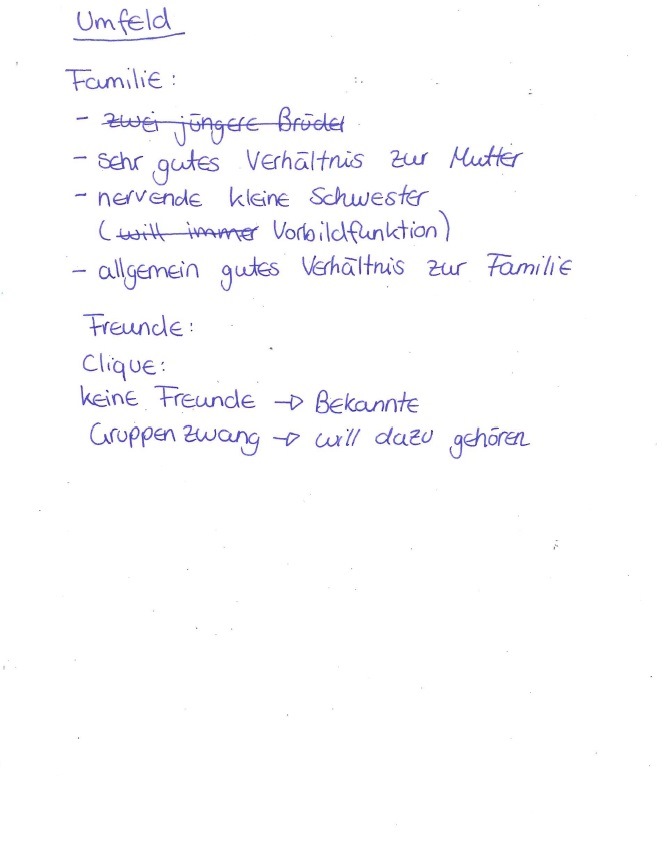 Umfeld
Familie:
- zwei jüngere Brüder
- sehr gutes Verhältnis zur Mutter
- nervende kleine Schwester
(will immer Vorbildfunktion)
- allgemein gutes Verhältnis zur Familie
Freunde:
Clique:
keine Freunde → Bekannte
Gruppenzwang → will dazu gehören